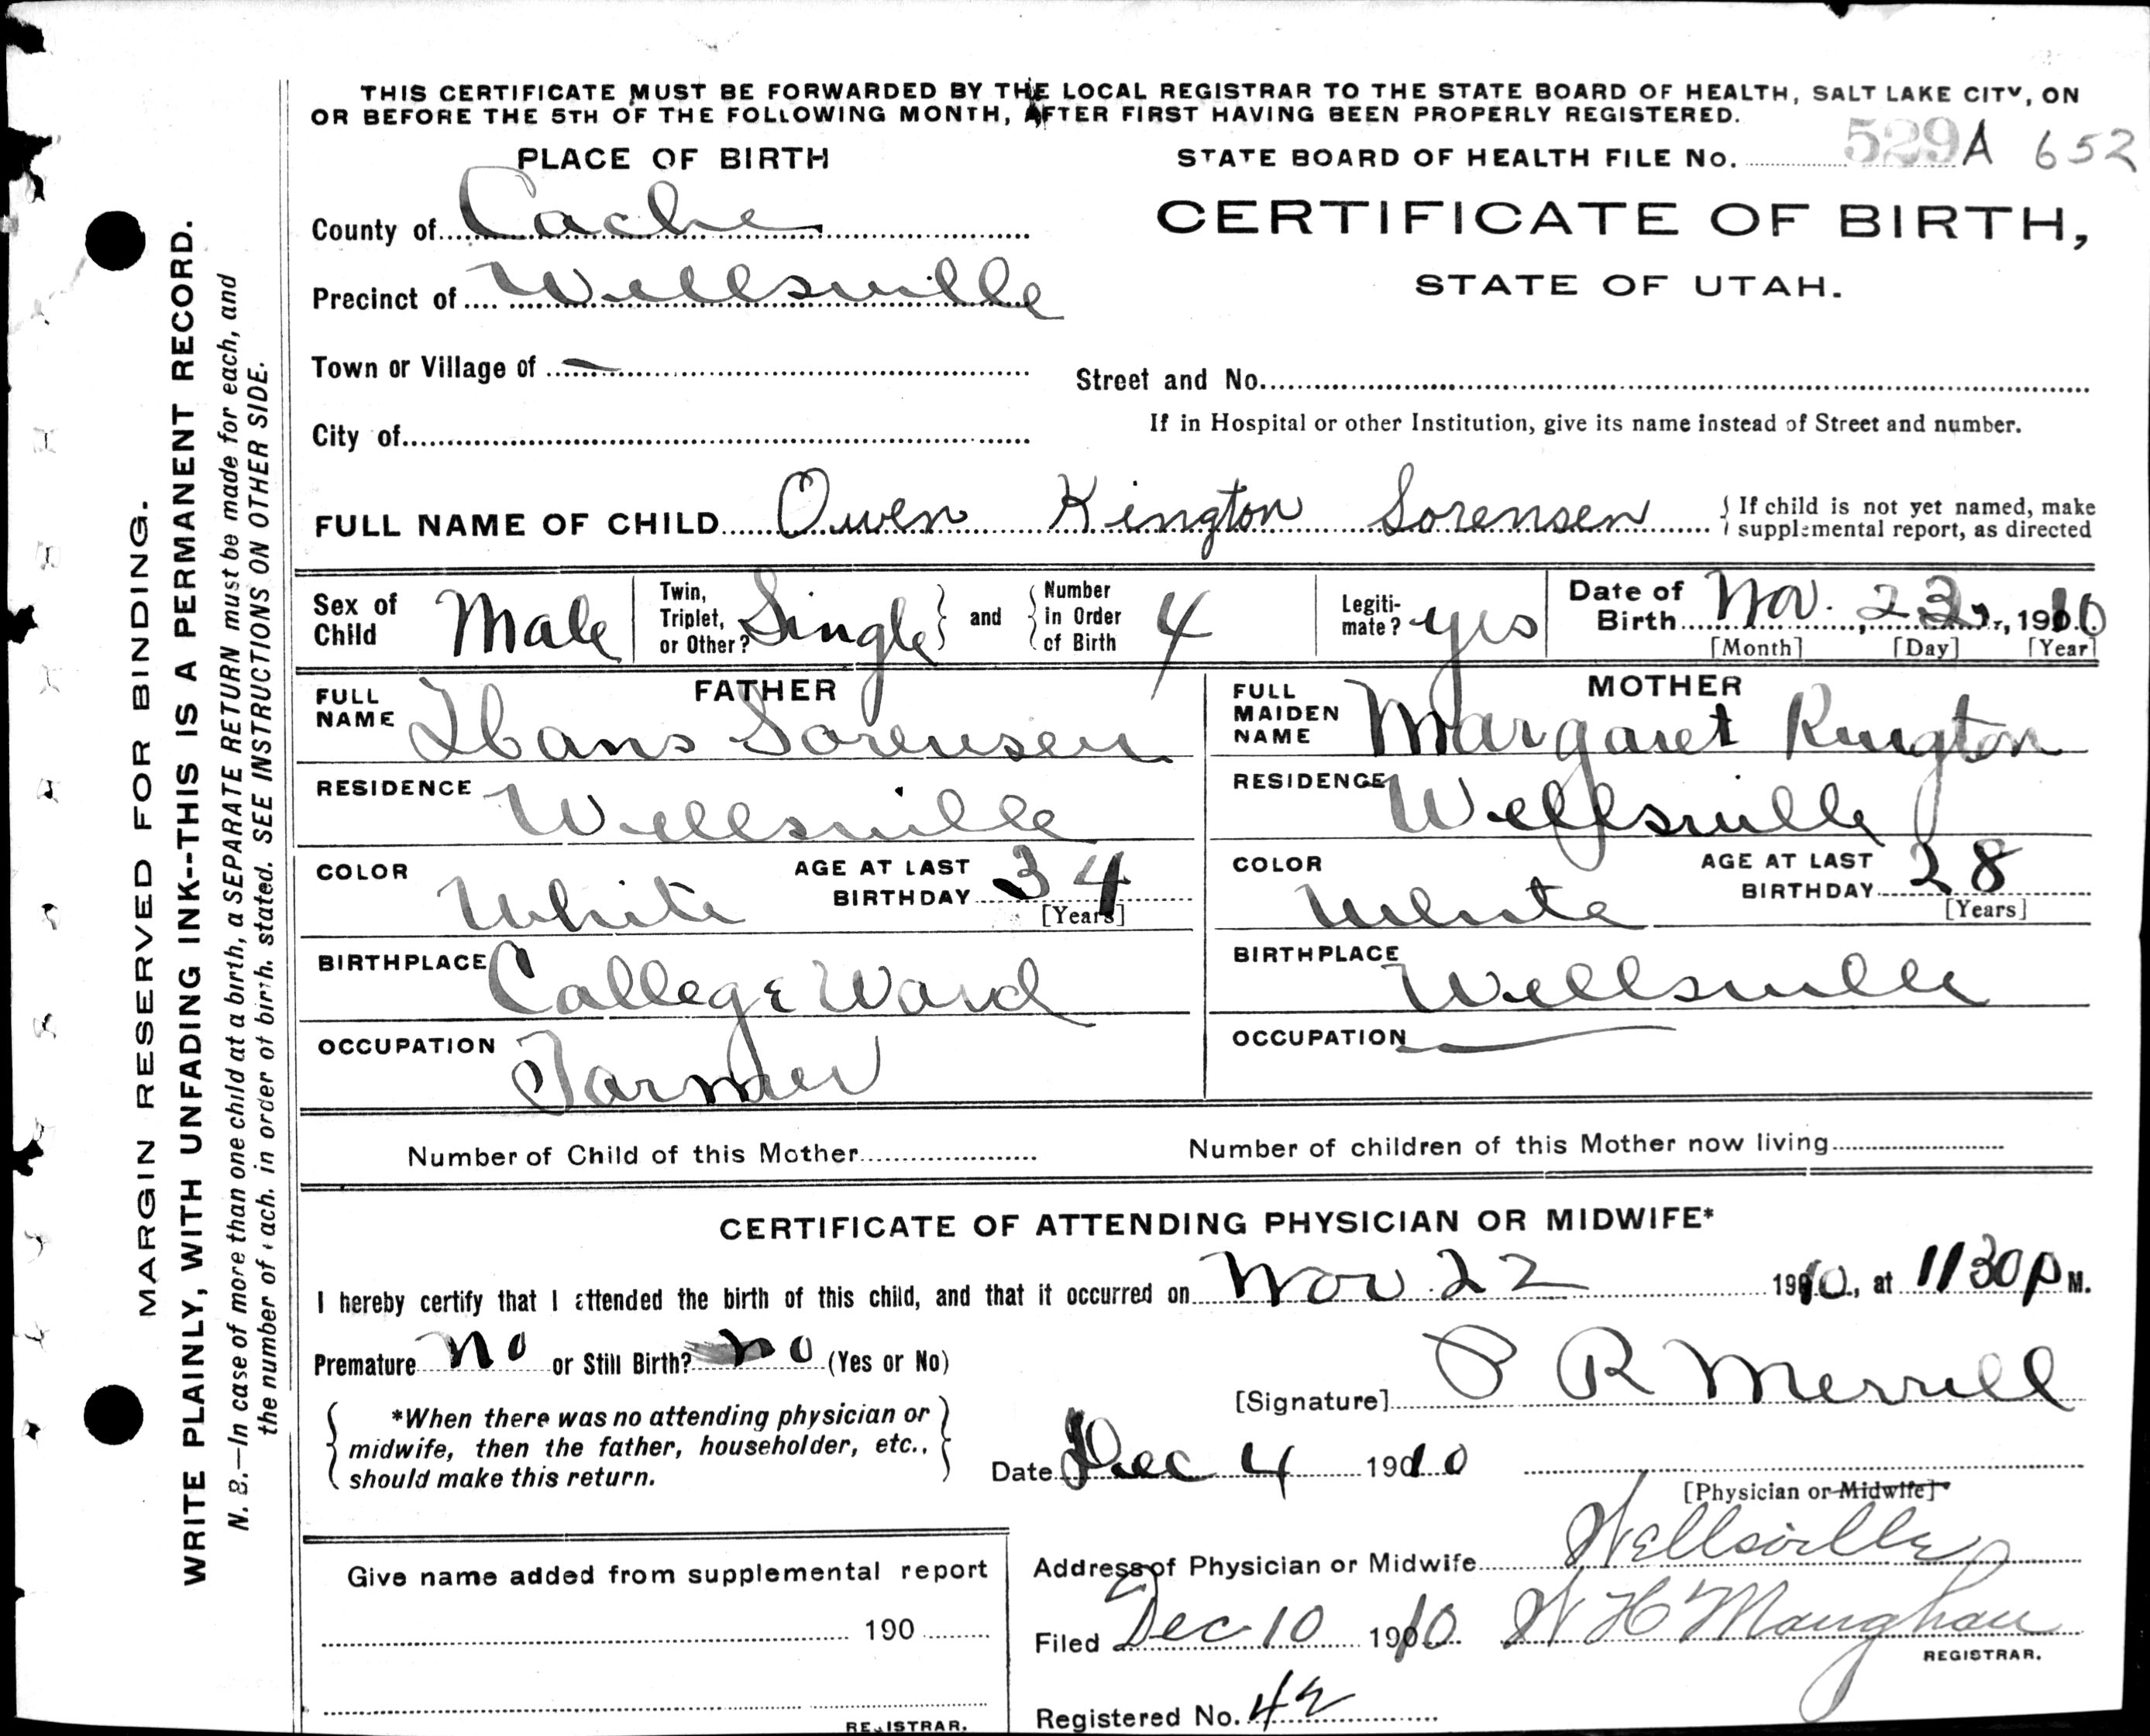 THIS CERTIFICATE MUST BE FORWARDED BY THE LOCAL REGISTRAR TO THE STATE BOARD OF HEALTH, SALT LAKE CITY, ON
OR BEFORE THE 5TH OF THE FOLLOWING MONTH, AFTER FIRST HAVING BEEN PROPERLY REGISTERED.
PLACE OF BIRTH
STATE BOARD OF HEALTH FILE No. 529 A 652
County of Cache
CERTIFICATE OF BIRTH,
Precinct of Wellsville
STATE OF UTAH.
Town or Village of —
Street and No.
City of
If in Hospital or other Institution, give its name instead of Street and number.
FULL NAME OF CHILD Owen Kington Sorensen { If child is not yet named, make
supplemental report, as directed
Sex of Child Male
Twin, Triplet, or Other? Single } and { Number in Order of Birth 4
Legiti-mate? yes
Date of Birth Nov. 23, 1910
[Month] [Day] [Year]
FATHER
FULL NAME Hans Sorensen
RESIDENCE Wellsville
COLOR White AGE AT LAST BIRTHDAY 34
[Years]
BIRTHPLACE College Ward
OCCUPATION Farmer
MOTHER
FULL MAIDEN NAME Margaret Kington
RESIDENCE Wellsville
COLOR White AGE AT LAST BIRTHDAY 28
[Years]
BIRTHPLACE Wellsville
OCCUPATION —
Number of Child of this Mother
Number of children of this Mother now living
CERTIFICATE OF ATTENDING PHYSICIAN OR MIDWIFE*
I hereby certify that I attended the birth of this child, and that it occurred on Nov 22 1910, at 1130 P M.
Premature no or Still Birth? no (Yes or No)
[Signature] P R Merrill
*When there was no attending physician or
midwife, then the father, householder, etc.,
should make this return.
Date Dec 4 1910
[Physician or Midwife]
Give name added from supplemental report
190
REGISTRAR.
Address of Physician or Midwife Wellsville
Filed Dec 10 1910 W H Maughan
REGISTRAR.
Registered No. 42
MARGIN RESERVED FOR BINDING.
WRITE PLAINLY, WITH UNFADING INK--THIS IS A PERMANENT RECORD.
N. B.—In case of more than one child at a birth, a SEPARATE RETURN must be made for each, and
the number of each, in order of birth, stated. SEE INSTRUCTIONS ON OTHER SIDE.